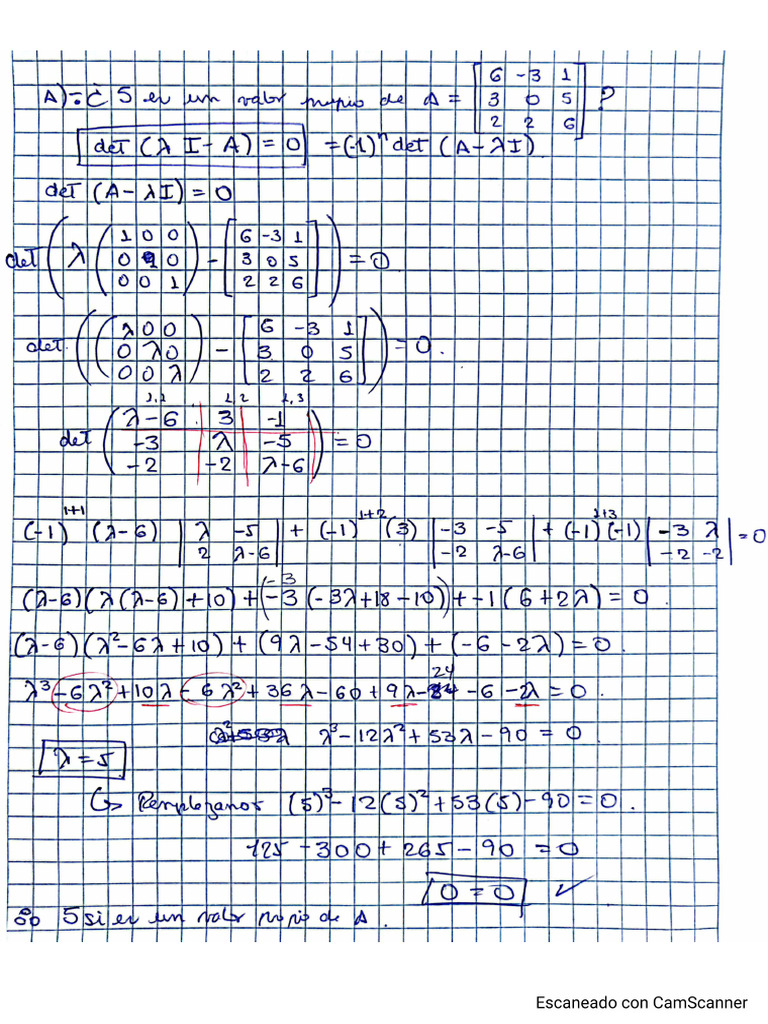 A) = ¿ 5 es un valor propio de A = [6 -3 1; 3 0 5; 2 2 6] ?
det (λ I - A) = 0 = (-1)^n det (A - λI)
det (A - λI) = 0
det ( λ (1 0 0; 0 1 0; 0 0 1) - [6 -3 1; 3 0 5; 2 2 6] ) = 0
det. ( (λ 0 0; 0 λ 0; 0 0 λ) - [6 -3 1; 3 0 5; 2 2 6] ) = 0.
1,1 1,2 1,3
det ( λ-6 3 -1; -3 λ -5; -2 -2 λ-6 ) = 0
(-1)^1+1 (λ-6) |λ -5; 2 λ-6| + (-1)^1+2 (3) |-3 -5; -2 λ-6| + (-1)^1+3 (-1) |-3 λ; -2 -2| = 0
-3
(λ-6)(λ(λ-6)+10) + (-3(-3λ+18-10)) + -1(6+2λ) = 0
(λ-6)(λ²-6λ+10) + (9λ-54+30) + (-6-2λ) = 0.
λ³-6λ²+10λ-6λ²+36λ-60+9λ-24-6-2λ = 0.
λ³-12λ²+53λ-90 = 0.
λ = 5
↳ Remplazamos (5)³-12(5)²+53(5)-90 = 0.
125-300+265-90 = 0
0 = 0 ✓
∴ 5 si es un valor propio de A.
Escaneado con CamScanner